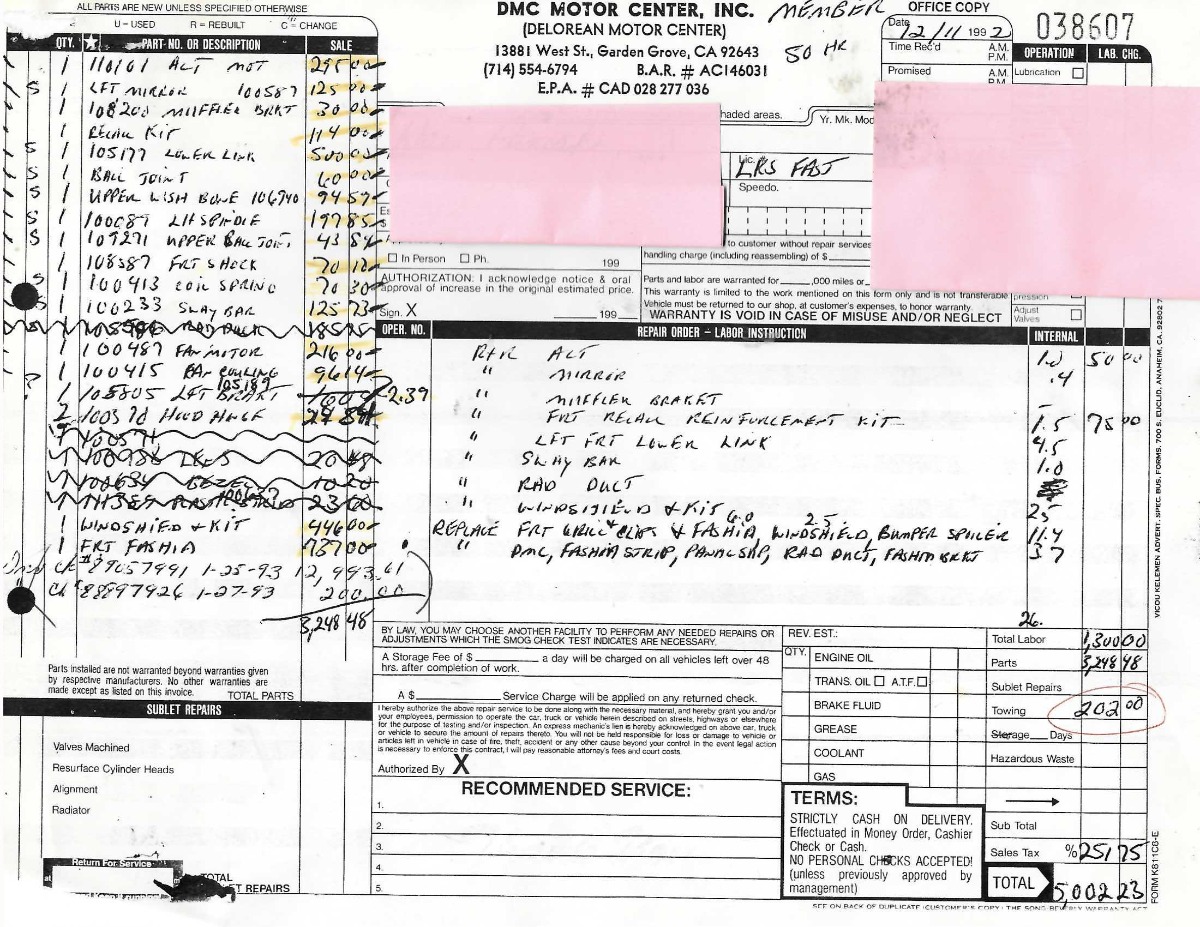 ALL PARTS ARE NEW UNLESS SPECIFIED OTHERWISE
U – USED R – REBUILT C – CHANGE
QTY. ★ PART NO. OR DESCRIPTION SALE
1 110101 ALT MOT 295 00
S 1 LFT MIRROR 100587 125 00
1 108200 MUFFLER BRKT 30 00
1 RECALL KIT 114 00
S 1 105177 LOWER LINK 500 00
S 1 BALL JOINT 60 00
S 1 UPPER WISH BONE 106940 94 57
S 1 100087 LH SPINDLE 197 85
S 1 109271 UPPER BALL JOINT 43 84
1 108387 FRT SHOCK 70 12
S 1 100413 COIL SPRING 70 30
1 100233 SWAY BAR 125 73
RAD DUCT
1 100487 FAN MOTOR 216 00
1 100415 FAN COULING 96 14
? 1 105805 LFT BRAKT 105189 2.39
2 100370 HOOD HINGE
1 100571
1 LENS 20 48
1 100634 BEZEL 10 20
23 00
1 WINDSHIELD + KIT 446 00
1 FRT FASHIA
CK # 89057991 1-25-93 12,993.61
CK # 88897926 1-27-93 200.00
3,248 48
Parts installed are not warranted beyond warranties given
by respective manufacturers. No other warranties are
made except as listed on this invoice. TOTAL PARTS
SUBLET REPAIRS
Valves Machined
Resurface Cylinder Heads
Alignment
Radiator
Return For Service
TOTAL
SUBLET REPAIRS
DMC MOTOR CENTER, INC.
(DELOREAN MOTOR CENTER)
13881 West St., Garden Grove, CA 92643
(714) 554-6794 B.A.R. # AC146031
E.P.A. # CAD 028 277 036
MEMBER
50 HR
OFFICE COPY
Date 12/11 1992
Time Rec'd A.M.
P.M.
Promised A.M.
P.M.
038607
OPERATION LAB. CHG.
Lubrication
haded areas.
Yr. Mk. Mod
Lic. LRS FAST
Speedo.
Es
$
to customer without repair services
handling charge (including reassembling) of $
In Person Ph. 199
AUTHORIZATION: I acknowledge notice & oral
approval of increase in the original estimated price.
Sign. X 199
Parts and labor are warranted for ,000 miles or
This warranty is limited to the work mentioned on this form only and is not transferable
Vehicle must be returned to our shop, at customer's expenses, to honor warranty.
WARRANTY IS VOID IN CASE OF MISUSE AND/OR NEGLECT
pression
Adjust
Valves
OPER. NO. REPAIR ORDER – LABOR INSTRUCTION INTERNAL
R+R ALT 1.0 50 00
" MIRROR .4
" MUFFLER BRAKET
" FRT RECALL REINFORCEMENT KIT 1.5 75 00
" LFT FRT LOWER LINK 4.5
" SWAY BAR 1.0
" RAD DUCT
" WINDSHIELD + KIT 2.5
6.0 2.5
REPLACE FRT GRILL + CLIPS + FASHIA, WINDSHIELD, BUMPER SPOILER 11.4
" DMC, FASHIA STRIP, PANAL SHP, RAD DUCT, FASHIA BRKT 3.7
26.
BY LAW, YOU MAY CHOOSE ANOTHER FACILITY TO PERFORM ANY NEEDED REPAIRS OR
ADJUSTMENTS WHICH THE SMOG CHECK TEST INDICATES ARE NECESSARY.
A Storage Fee of $ a day will be charged on all vehicles left over 48
hrs. after completion of work.
A $ Service Charge will be applied on any returned check.
I hereby authorize the above repair service to be done along with the necessary material, and hereby grant you and/or
your employees, permission to operate the car, truck or vehicle herein described on streets, highways or elsewhere
for the purpose of testing and/or inspection. An express mechanic's lien is hereby acknowledged on above car, truck
or vehicle to secure the amount of repairs thereto. You will not be held responsible for loss or damage to vehicle or
articles left in vehicle in case of fire, theft, accident or any other cause beyond your control. In the event legal action
is necessary to enforce this contract, I will pay reasonable attorney's fees and court costs.
Authorized By X
RECOMMENDED SERVICE:
1.
2.
3.
4.
5.
REV. EST.:
QTY. ENGINE OIL
TRANS. OIL A.T.F.
BRAKE FLUID
GREASE
COOLANT
GAS
TERMS:
STRICTLY CASH ON DELIVERY.
Effectuated in Money Order, Cashier
Check or Cash.
NO PERSONAL CHECKS ACCEPTED!
(unless previously approved by
management)
Total Labor 1,300 00
Parts 3,248 48
Sublet Repairs
Towing 202 00
Storage Days
Hazardous Waste
Sub Total
Sales Tax % 251 75
TOTAL 5,002 23
SEE ON BACK OF DUPLICATE (CUSTOMER'S COPY) THE SONG BEVERLY WARRANTY ACT
FORM K811C6-E
YICOU KELEMEN ADVERT. SPEC. BUS. FORMS, 700 S. EUCLID, ANAHEIM, CA. 92802